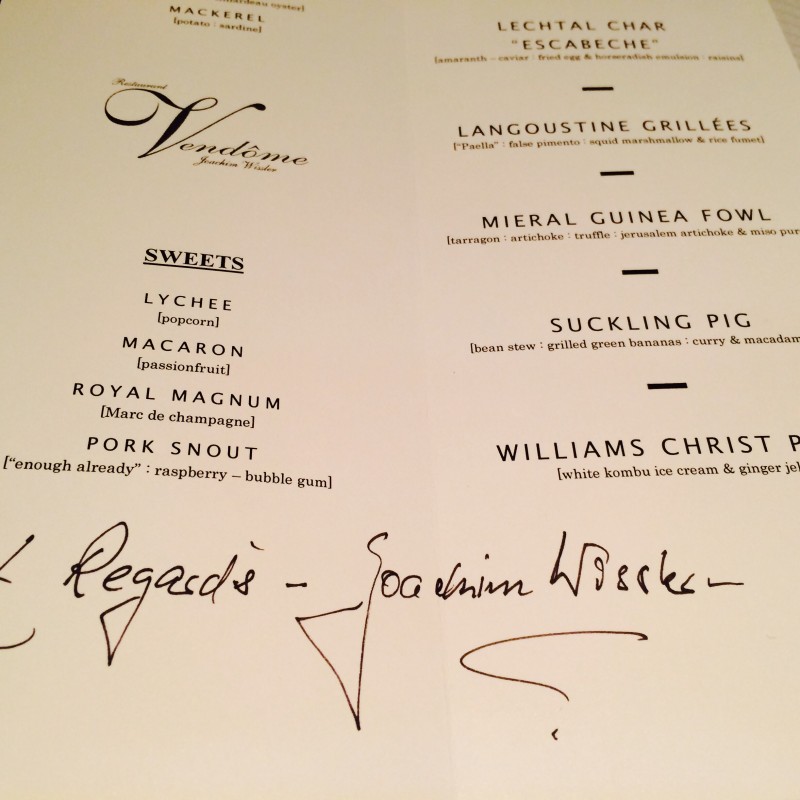 MACKEREL
[potato : sardine]
Restaurant
Vendôme
Joachim Wissler
SWEETS
LYCHEE
[popcorn]
MACARON
[passionfruit]
ROYAL MAGNUM
[Marc de champagne]
PORK SNOUT
["enough already" : raspberry – bubble gum]
LECHTAL CHAR
"ESCABECHE"
[amaranth – caviar : fried egg & horseradish emulsion : raisins]
LANGOUSTINE GRILLÉES
["Paella" : false pimento : squid marshmallow & rice fumet]
MIERAL GUINEA FOWL
[tarragon : artichoke : truffle : jerusalem artichoke & miso pur
SUCKLING PIG
[bean stew : grilled green bananas : curry & macadam
WILLIAMS CHRIST P
[white kombu ice cream & ginger jel
Regards – Joachim Wissler